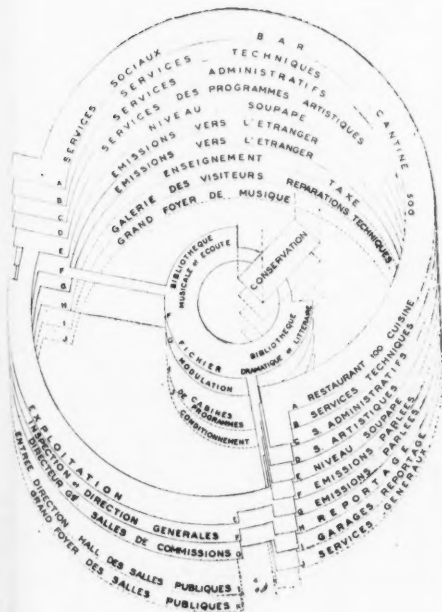 BAR
SERVICES SOCIAUX
CANTINE 500
SERVICES TECHNIQUES
SERVICES ADMINISTRATIFS
SERVICES DES PROGRAMMES ARTISTIQUES
NIVEAU SOUPAPE
EMISSIONS VERS L'ETRANGER
EMISSIONS VERS L'ETRANGER
ENSEIGNEMENT TAXE
GALERIE DES VISITEURS REPARATIONS TECHNIQUES
GRAND FOYER DE MUSIQUE
A
B
C
D
E
F
G
H
I
J
BIBLIOTHEQUE
MUSICALE ET ECOUTE
CONSERVATION
BIBLIOTHEQUE
DRAMATIQUE ET LITTERAIRE
F FICHIER
G MODULATION
H DE CABINES
DE PROGRAMMES
CONDITIONNEMENT
A RESTAURANT 100 CUISINE
B SERVICES TECHNIQUES
C S. ADMINISTRATIFS
D S. ARTISTIQUES
E NIVEAU SOUPAPE
F EMISSIONS PARLEES
G EMISSIONS PARLEES
H REPORTAGE
I GARAGES REPORTAGE
J SERVICES GENERAUX
EXPLOITATION E
INSPECTION ET DIRECTION GENERALES F
DIRECTEUR GF SALLES DE COMMISSIONS G
ENTREE DIRECTION HALL DES SALLES PUBLIQUES
GRAND FOYER DES SALLES PUBLIQUES